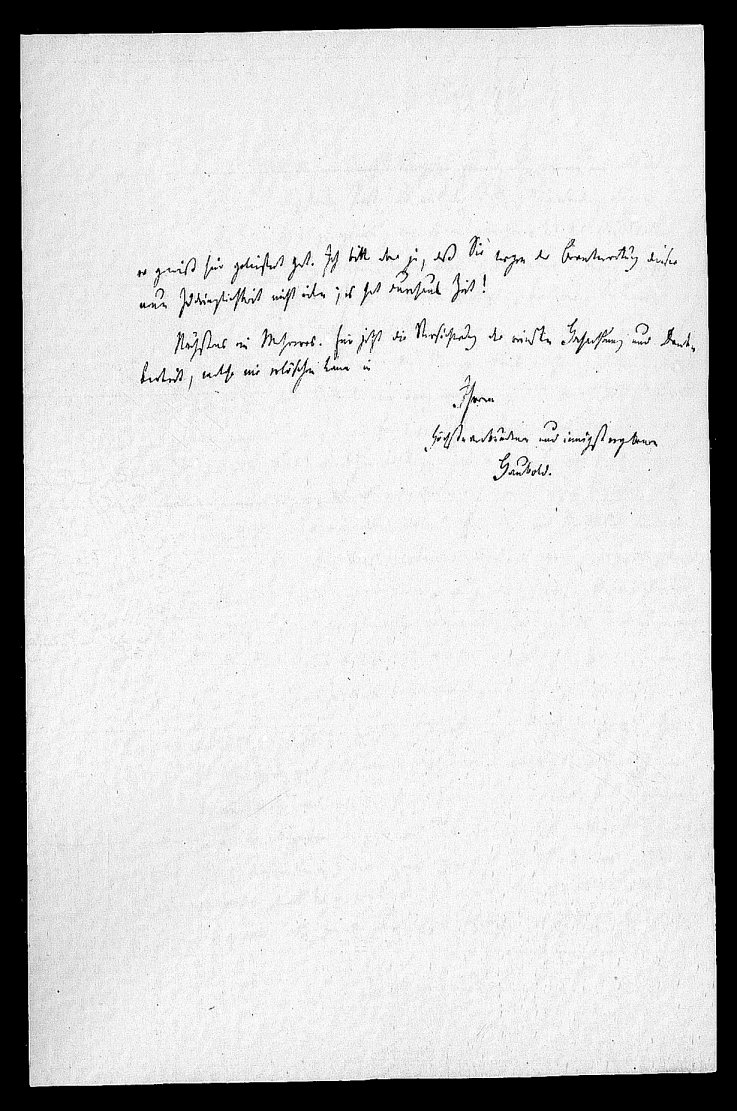 er gewiß hier geleistet hat. Ich bitte aber ja, daß Sie wegen der Beantwortung dieser
neuen Zudringlichkeit nicht eilen; es hat durchaus Zeit!
Nächstens ein Mehreres. Für jetzt die Versicherung der reinsten Hochachtung und Dank-
barkeit, welche nie erlöschen kann in
Ihrem
höchstverbundenen und innigst ergebenen
Haubold.